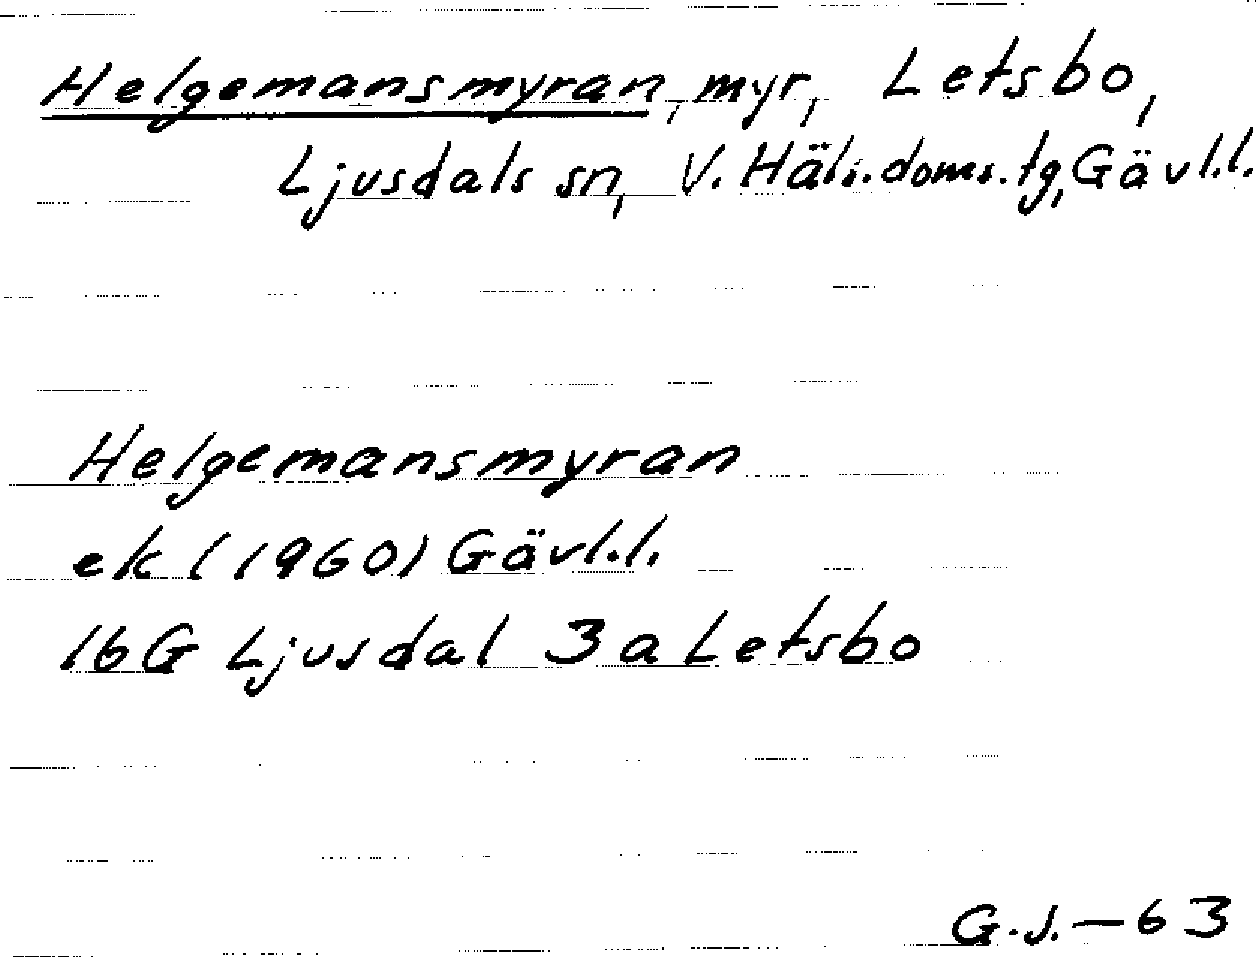 Helgemansmyran, myr, Letsbo,
Ljusdals sn, V. Häls. doms. tg, Gävl.l.
Helgemansmyran
ek (1960) Gävl.l.
16G Ljusdal 3a Letsbo
G.J.—63